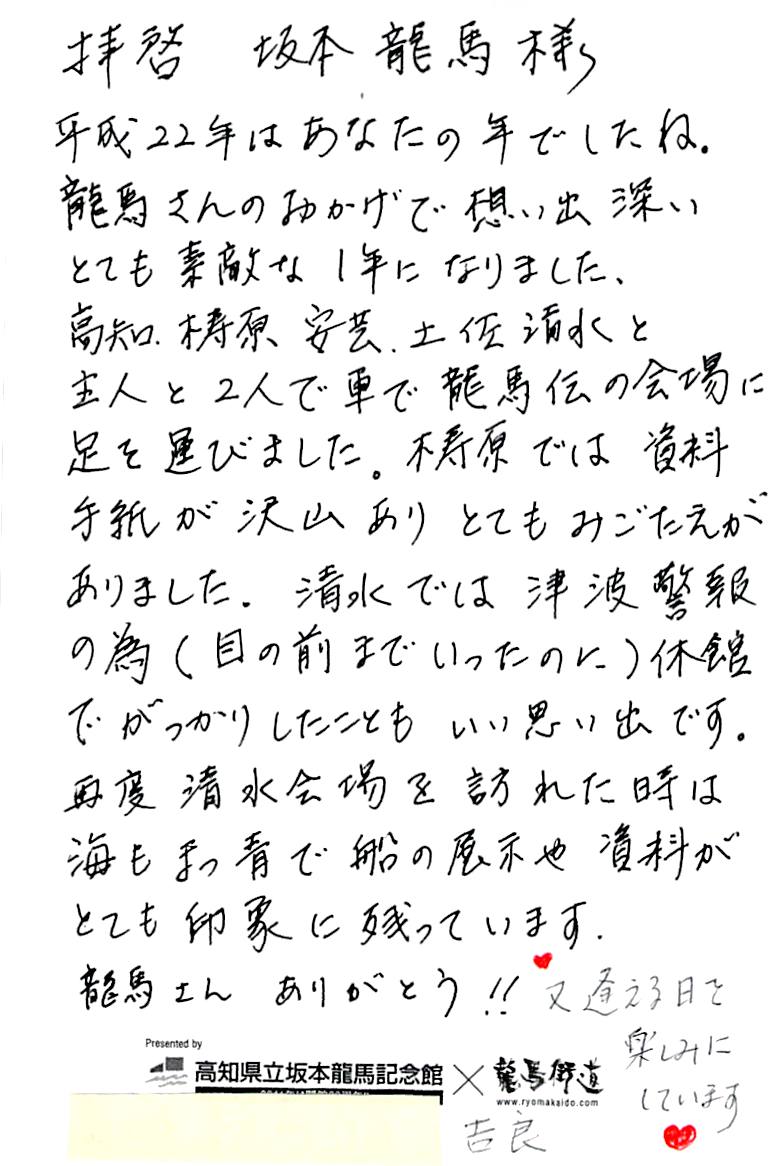 拝啓 坂本龍馬様
平成22年はあなたの年でしたね。
龍馬さんのおかげで想い出深い
とても素敵な1年になりました、
高知.梼原 安芸.土佐清水と
主人と2人で車で龍馬伝の会場に
足を運びました。梼原では資料
手紙が沢山ありとてもみごたえが
ありました。清水では津波警報
の為(目の前までいったのに)休館
でがっかりしたこともいい思い出です。
再度清水会場を訪れた時は
海もまっ青で船の展示や資料が
とても印象に残っています.
龍馬さん ありがとう!!
又逢える日を
楽しみに
しています
Presented by
高知県立坂本龍馬記念館×龍馬街道
www.ryomakaido.com
吉良